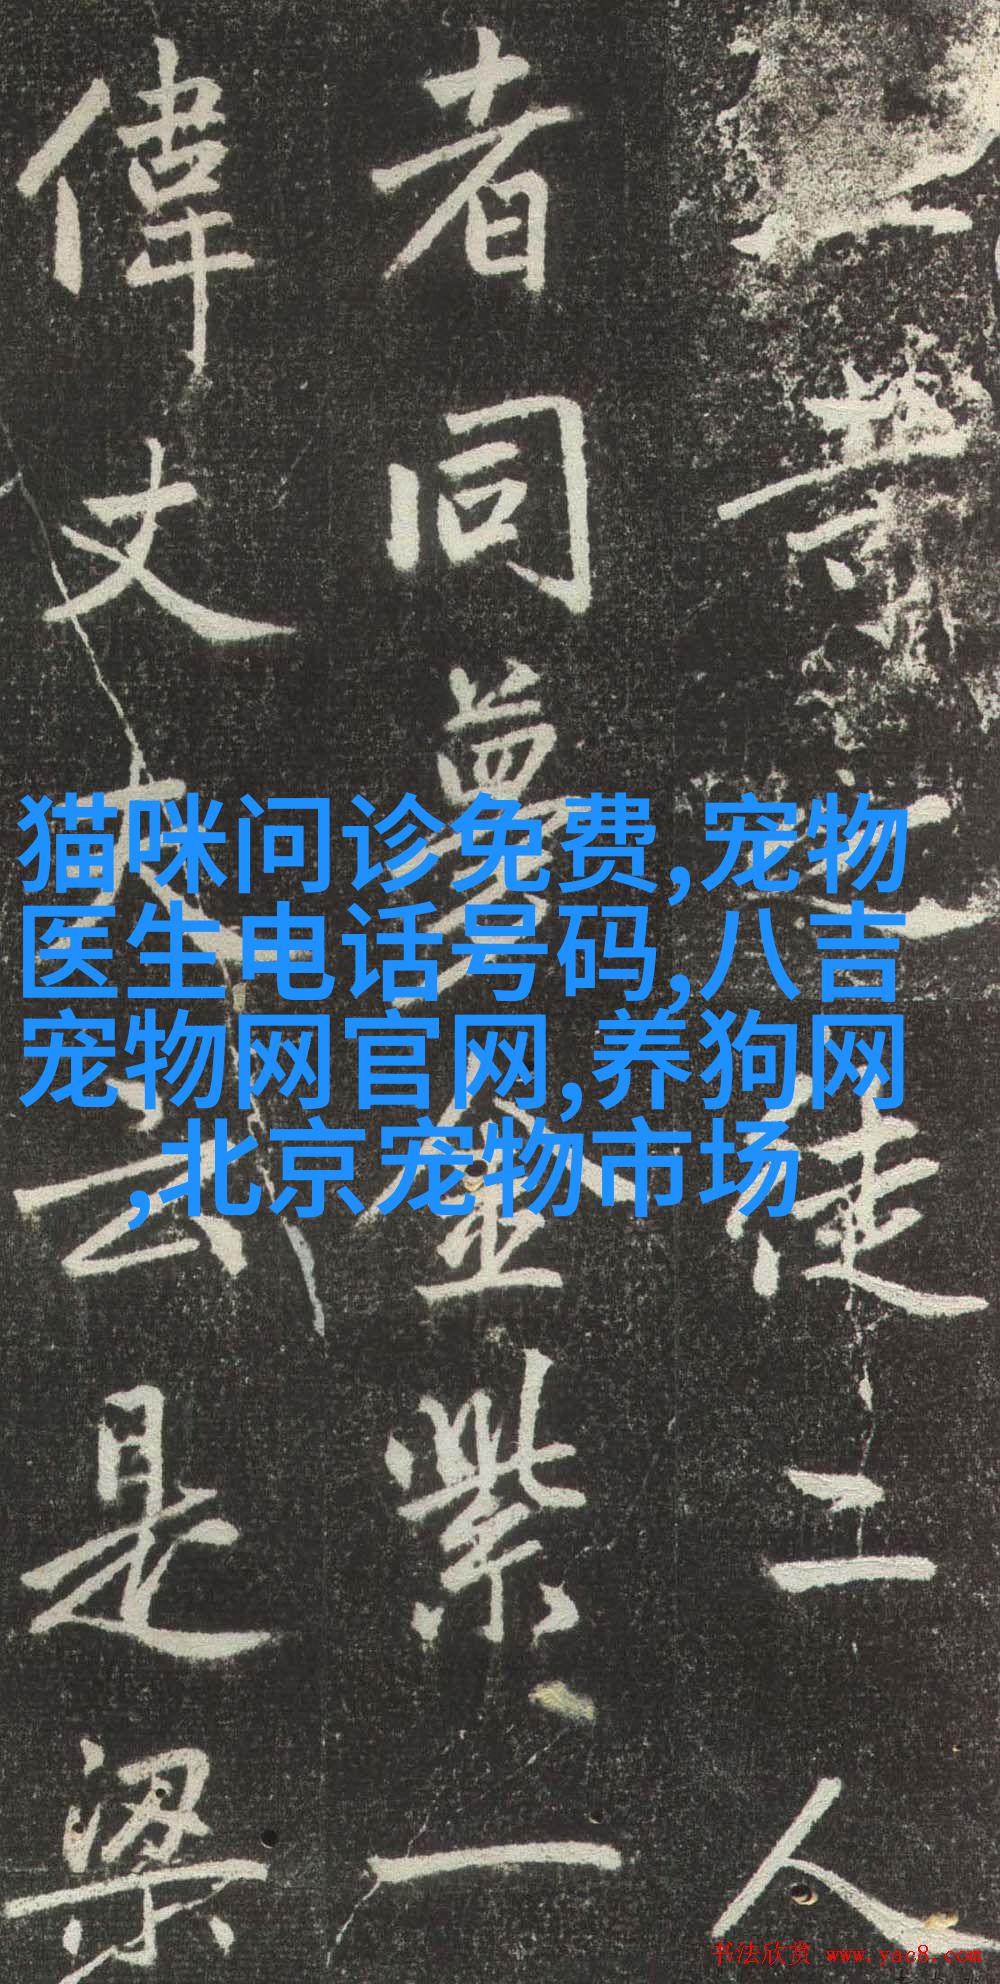 之徒二人
者同夢金紫一
偉丈夫云是梁
猫咪问诊免费,宠物
医生电话号码,八吉
宠物网官网,养狗网
,北京宠物市场
书法欣赏 www.yac8.com